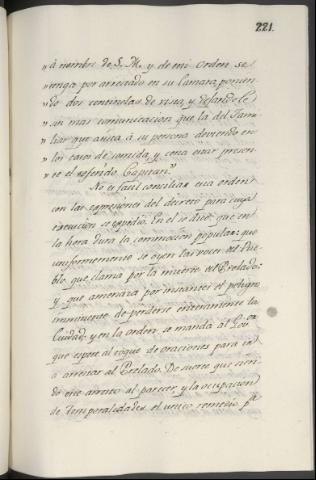 221.
" á nombre de S. M. y de mi orden se
" tenga por arrestado en su Camara, ponien
" do dos centinelas de vista, y dejandole
" sin mas comunicacion que la del Fami
" liar que asista á su persona deviendo en
" los casos de comida, y cena estar presen
" te el referido Capitan."
No es facil conciliar esa orden
con las expresiones del decreto para cuya
execucion se expedio. En el se dice que en
la hora dura la conmocion popular: que
uniformemente se oyen las voces del Pue
blo que clama por la muerte del Prelado:
y que amenaza por instantes el peligro
imminente de perderse enteramente la
Ciudad y en la orden, se manda al Gov.or
que espere al toque de oraciones para ir
a arrestar al Prelado. De suerte que sien
do ese arresto al parecer, y la ocupacion
de temporalidades, el unico remedio pa